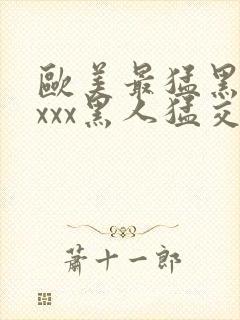 歐美最猛黑
xxx黑人猛交
蕭十一郎